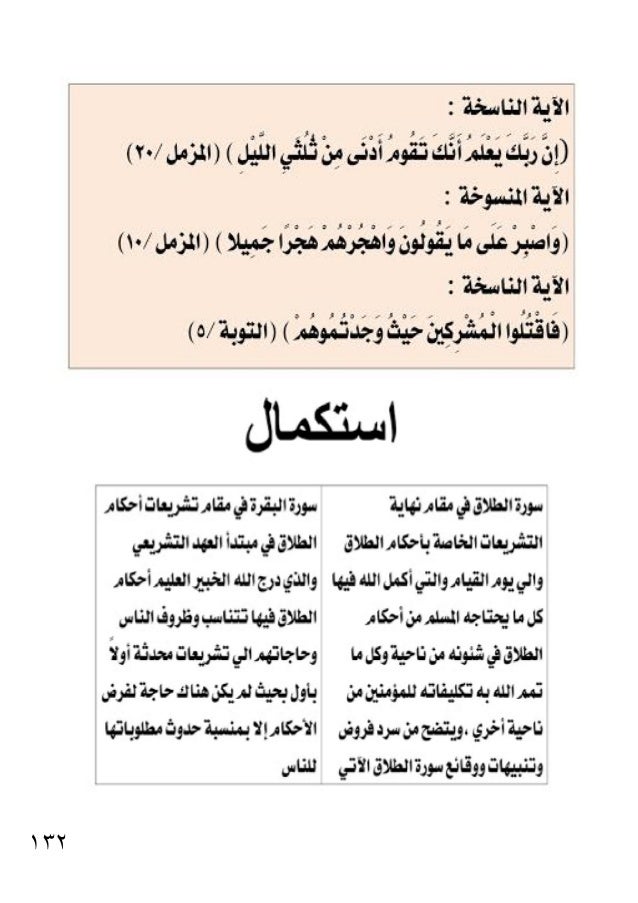 الآية الناسخة :
(إِنَّ رَبَّكَ يَعْلَمُ أَنَّكَ تَقُومُ أَدْنَى مِنْ ثُلُثَيِ اللَّيْلِ ) (المزمل /٢٠)
الآية المنسوخة :
(وَاصْبِرْ عَلَى مَا يَقُولُونَ وَاهْجُرْهُمْ هَجْرًا جَمِيلا ) (المزمل /١٠)
الآية الناسخة :
(فَاقْتُلُوا الْمُشْرِكِينَ حَيْثُ وَجَدْتُمُوهُمْ ) (التوبة /٥)
استكمال
سورة الطلاق في مقام نهاية
التشريعات الخاصة بأحكام الطلاق
والي يوم القيام والتي أكمل الله فيها
كل ما يحتاجه المسلم من أحكام
الطلاق في شئونه من ناحية وكل ما
تمم الله به تكليفاته للمؤمنين من
ناحية أخري ،ويتضح من سرد فروض
وتنبيهات ووقائع سورة الطلاق الآتي
سورة البقرة في مقام تشريعات أحكام
الطلاق في مبتدأ العهد التشريعي
والذي درج الله الخبير العليم أحكام
الطلاق فيها تتناسب وظروف الناس
وحاجاتهم الي تشريعات محدثة أولاً
بأول بحيث لم يكن هناك حاجة لفرض
الأحكام إلا بمنسبة حدوث مطلوباتها
للناس
١٣٢